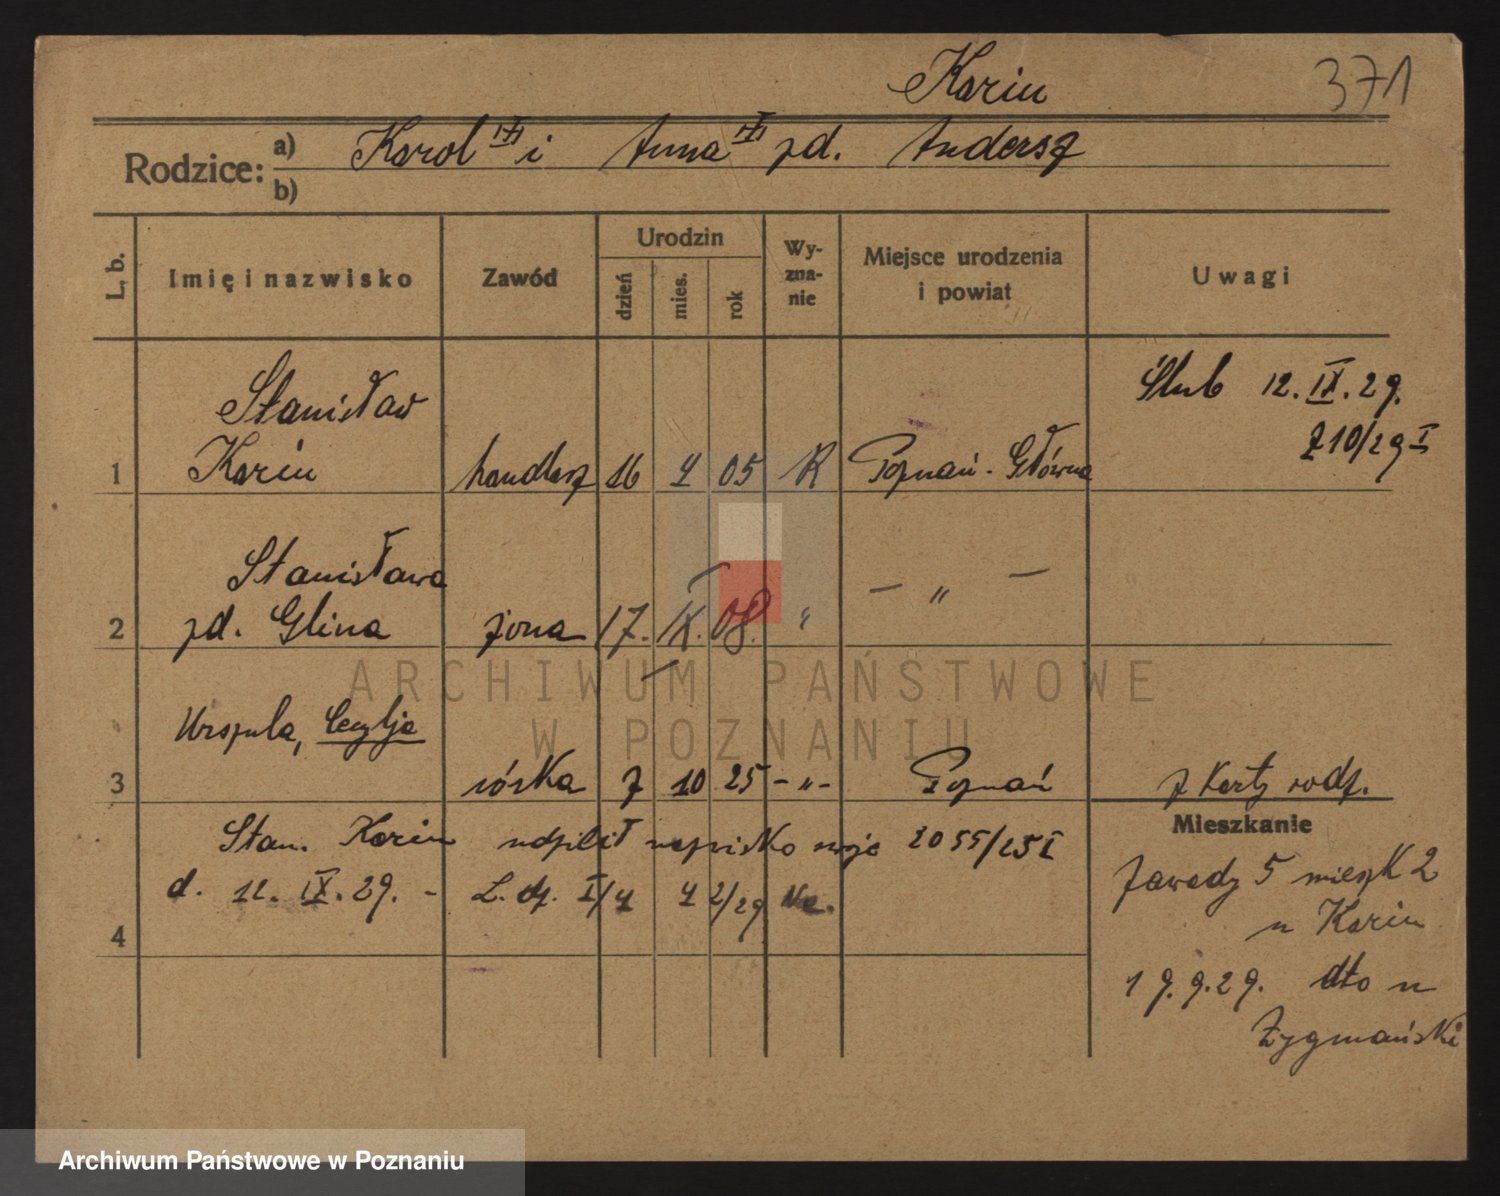 Karin 371
Rodzice: a) Karol i Anna zd. Andersz
b)
L. b. Imię i nazwisko Zawód Urodzin dzień mies. rok Wy-zna-nie Miejsce urodzenia i powiat Uwagi
Stanisław Ślub 12. IX. 29.
1 Karin handlarz 16 4 05 R Poznań-Główna 710/29 I
Stanisława
2 zd. Glina żona 17. IX. 08. " — " —
Urszula, Cecylja
3 córka 7 10 25 - " - Poznań z karty rodz.
Stan. Karin udzielił nazwisko swoje 2055/25 I Mieszkanie
d. 12. IX. 29. - L. dz. I/4 42/29 Na. Zawady 5 mieszk 2
4 u Karin
19.9.29. dto u
Zygmański
ARCHIWUM PAŃSTWOWE
W POZNANIU
Archiwum Państwowe w Poznaniu